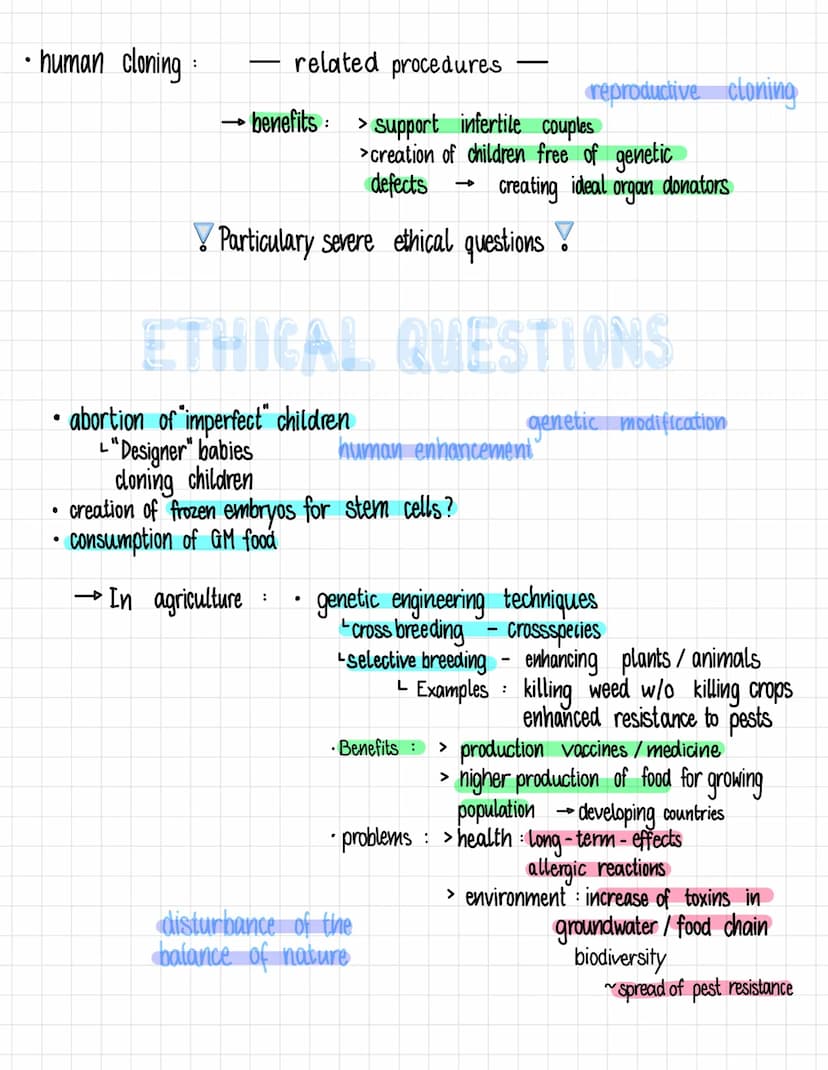 • human cloning : — related procedures —
reproductive cloning
→ benefits : > support infertile couples
>creation of children free of genetic
defects → creating ideal organ donators
! Particulary severe ethical questions !
ETHICAL QUESTIONS
• abortion of "imperfect" children
genetic modification
↳ "Designer" babies
human enhancement
cloning children
• creation of frozen embryos for stem cells?
• consumption of GM food
→ In agriculture : • genetic engineering techniques
↳ cross breeding - crossspecies
↳ selective breeding - enhancing plants / animals
↳ Examples : killing weed w/o killing crops
enhanced resistance to pests
· Benefits : > production vaccines / medicine
> higher production of food for growing
population → developing countries
· problems : > health : long-term-effects
allergic reactions
> environment : increase of toxins in
groundwater / food chain
disturbance of the
balance of nature
biodiversity
~ spread of pest resistance